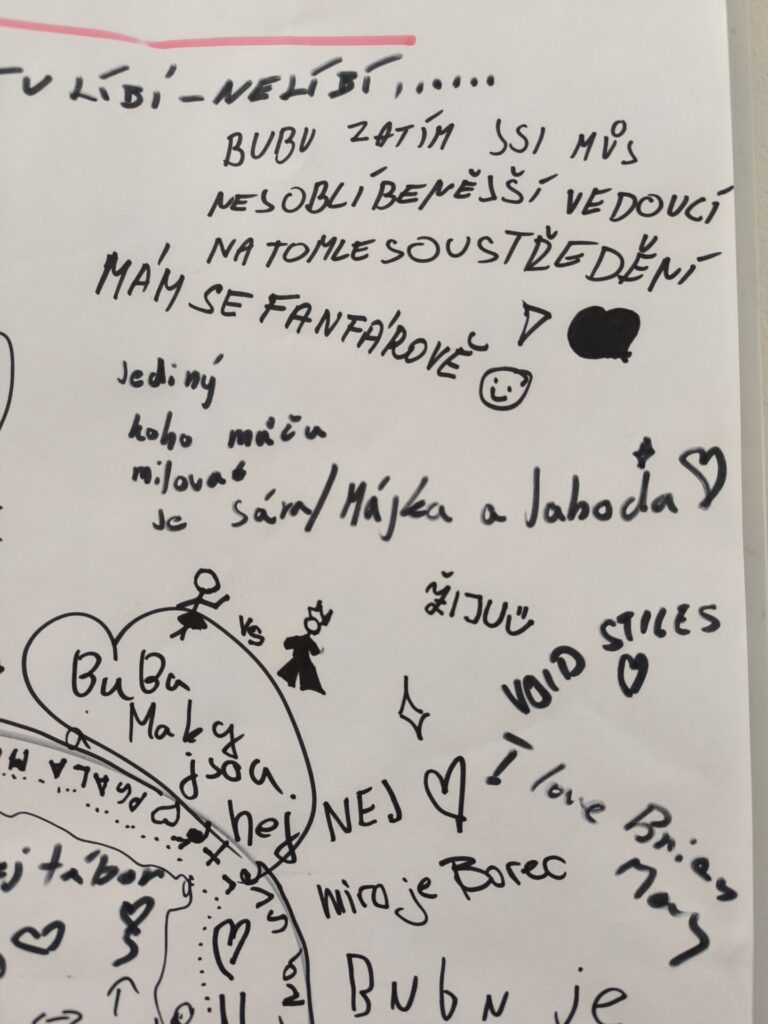 LÍBÍ - NELÍBÍ......
BUBU ZATÍM JSI MŮJ
NEJOBLÍBENĚJŠÍ VEDOUCÍ
NA TOMLE SOUSTŘEDĚNÍ
MÁM SE FANFÁROVĚ
Jediný
koho můžu
milovat
je Sára/Májka a Jahoda
ŽIJU
vs
VOID STILES
BuBa
a Maky
jsou
nej
NEJ
I love Brian
May
miro je Borec
tábor
Bubu je